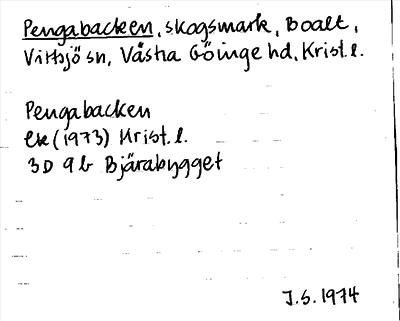 Pengabacken, skogsmark, Boalt,
Vittsjö sn, Västra Göinge hd, Krist.l.
Pengabacken
Ek (1973) Krist.l.
3D 9b Bjärabygget
J.S. 1974